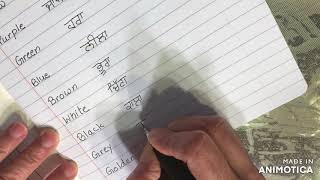 Purple
Green ਹਰਾ
Blue ਨੀਲਾ
Brown ਭੂਰਾ
White ਚਿੱਟਾ
Black ਕਾਲਾ
Grey
Golden
MADE IN
ANIMOTICA